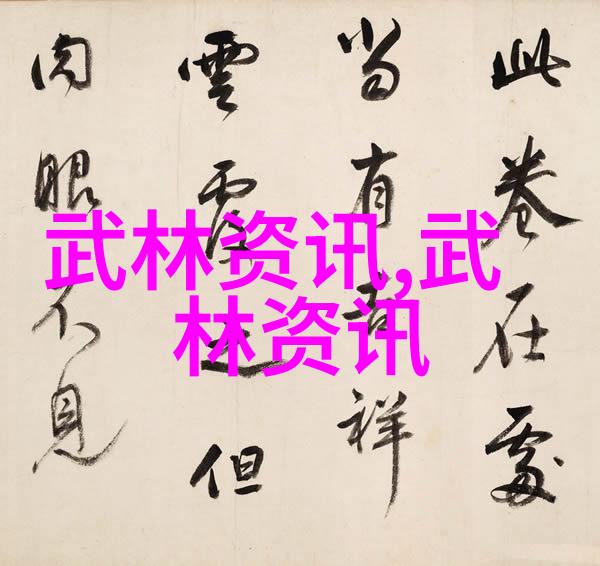 此卷在處
当有吉祥
雲覆之但
肉眼不見
武林资讯,武
林资讯